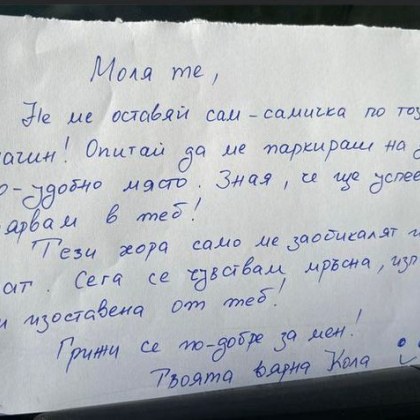 Моля те,
Не ме оставяй сам-самичка по
начин! Опитай да ме паркираш на
удобно място. Зная, че ще
в теб!
Тези хора само ме заобикалят
Сега се чувствам мръсна,
и изоставена от теб!
Грижи се по-добре за мен!
Твоята вярна Кола